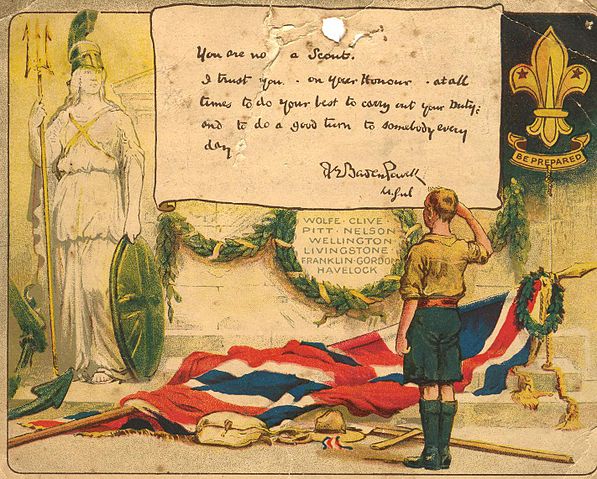 You are no a Scout.
I trust you - on your Honour - at all
times to do your best to carry out your Duty:
and to do a good turn to somebody every
day
BE PREPARED
WOLFE · CLIVE
PITT · NELSON
WELLINGTON
LIVINGSTONE
FRANKLIN · GORDON
HAVELOCK